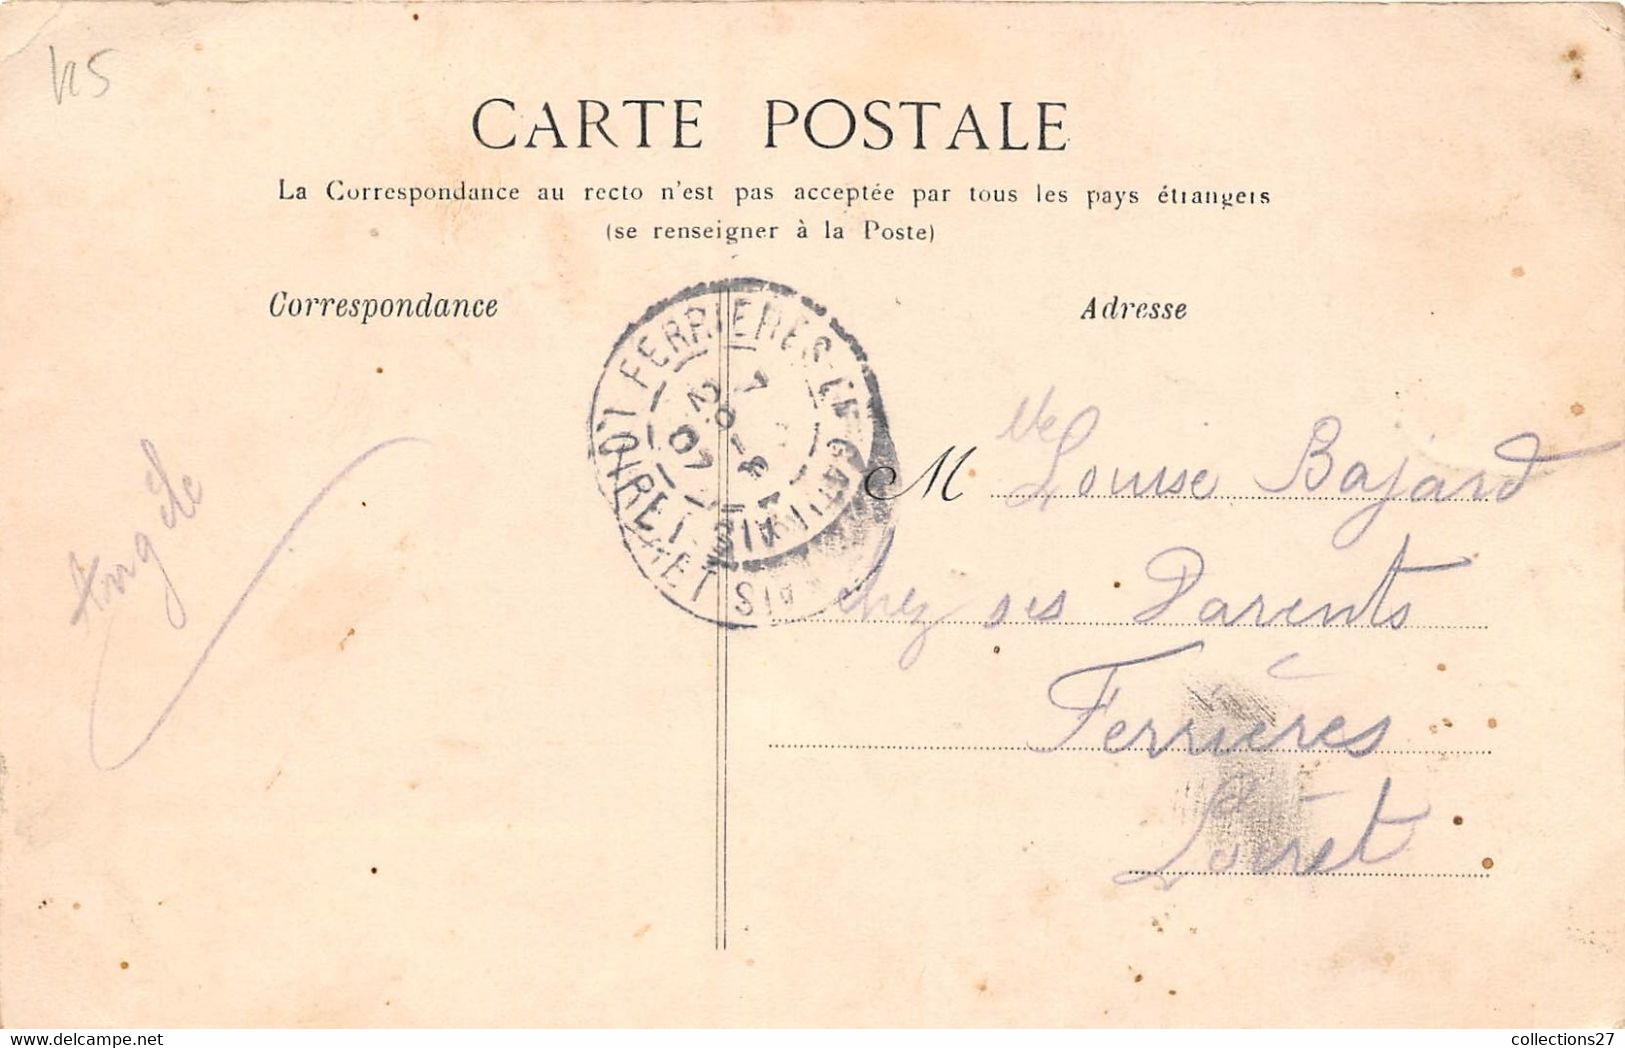 CARTE POSTALE
La Correspondance au recto n'est pas acceptée par tous les pays étrangers
(se renseigner à la Poste)
Correspondance
Adresse
Angèle
FERRIERES-EN-GATINAIS
LOIRET
07
M lle Louise Bajard
chez ses Parents
Ferrières
Loiret
collections27